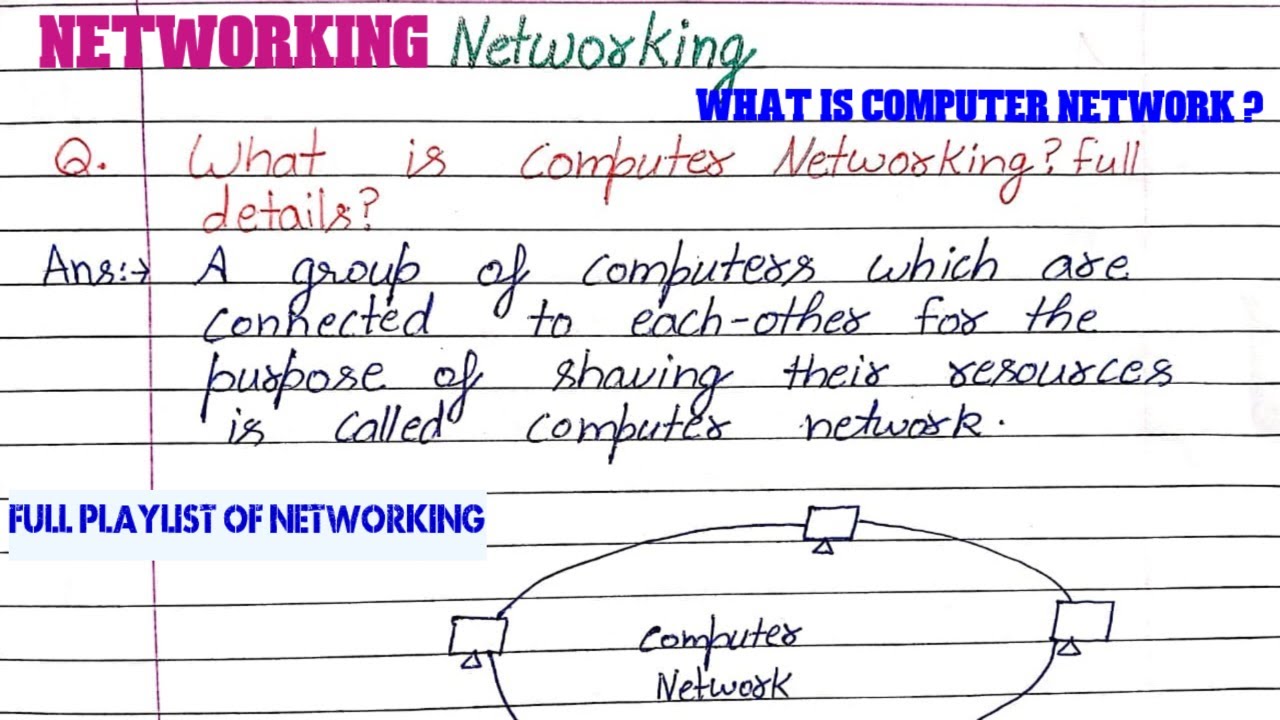 NETWORKING Networking
WHAT IS COMPUTER NETWORK ?
Q. What is Computer Networking? full
details?
Ans:→ A group of computers which are
connected to each-other for the
purpose of sharing their resources
is called computer network.
FULL PLAYLIST OF NETWORKING
Computer
Network